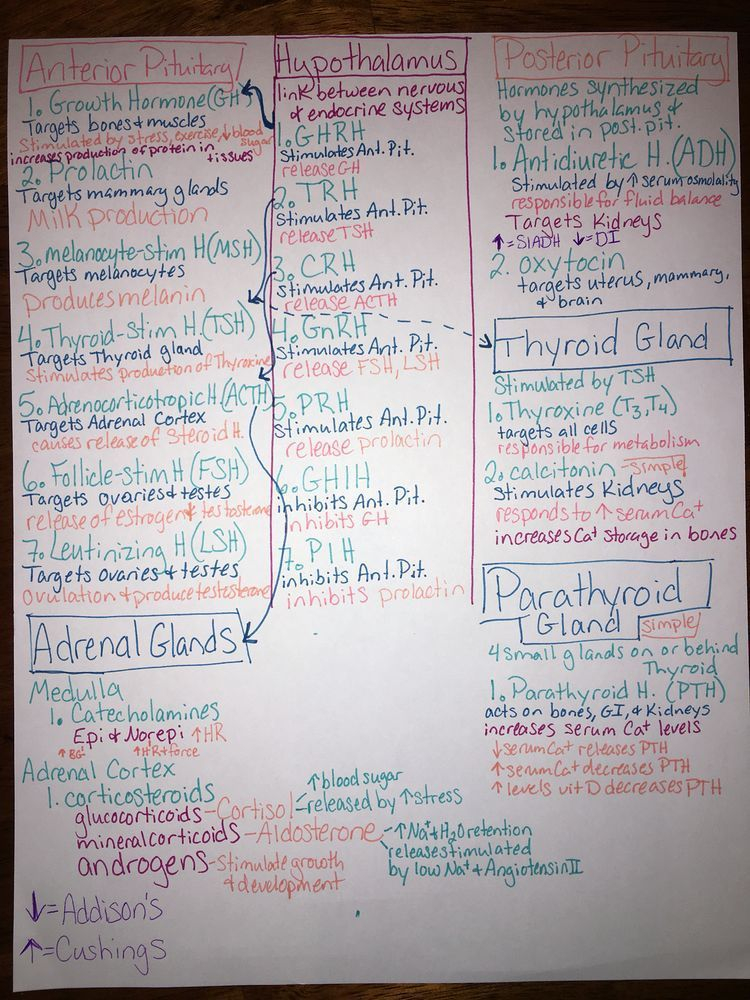 Anterior Pituitary
1. Growth Hormone (GH)
Targets bones & muscles
Stimulated by stress, exercise, ↓ blood sugar
increases production of protein in tissues
2. Prolactin
Targets mammary glands
Milk production
3. melanocyte-Stim H (MSH)
Targets melanocytes
Produces melanin
4. Thyroid-Stim H. (TSH)
Targets Thyroid gland
Stimulates production of Thyroxine
5. Adrenocorticotropic H. (ACTH)
Targets Adrenal Cortex
causes release of Steroid H.
6. Follicle-Stim H (FSH)
Targets ovaries & testes
release of estrogen & testosterone
7. Leutinizing H (LSH)
Targets Ovaries & testes
Ovulation & produce testosterone
Hypothalamus
link between nervous
& endocrine systems
1. GHRH
Stimulates Ant. Pit.
release GH
2. TRH
Stimulates Ant. Pit.
release TSH
3. CRH
Stimulates Ant. Pit.
release ACTH
4. GnRH
Stimulates Ant. Pit.
release FSH, LSH
5. PRH
Stimulates Ant. Pit.
release prolactin
6. GHIH
inhibits Ant. Pit.
inhibits GH
7. PIH
inhibits Ant. Pit.
inhibits prolactin
Posterior Pituitary
Hormones synthesized
by hypothalamus &
Stored in post. pit.
1. Antidiuretic H. (ADH)
Stimulated by ↑ serum osmolality
responsible for fluid balance
Targets Kidneys
↑=SIADH ↓=DI
2. oxytocin
targets uterus, mammary,
& brain
Thyroid Gland
Stimulated by TSH
1. Thyroxine (T3, T4)
targets all cells
responsible for metabolism
2. calcitonin - simple!
Stimulates Kidneys
responds to ↑ serum Ca+
increases Ca+ storage in bones
Parathyroid
Gland simple!
4 small glands on or behind
Thyroid
1. Parathyroid H. (PTH)
acts on bones, GI, & Kidneys
increases serum Ca+ levels
↓ serum Ca+ releases PTH
↑ serum Ca+ decreases PTH
↑ levels vit D decreases PTH
Adrenal Glands
Medulla
1. Catecholamines
Epi & Norepi ↑HR
↑BG ↑HR + force
Adrenal Cortex
1. corticosteroids
glucocorticoids - Cortisol
↑ blood sugar
released by ↑ stress
mineralcorticoids - Aldosterone
↑ Na+ & H2O retention
release stimulated
by low Na+ & Angiotensin II
androgens - Stimulate growth
& development
↓=Addison's
↑=Cushings